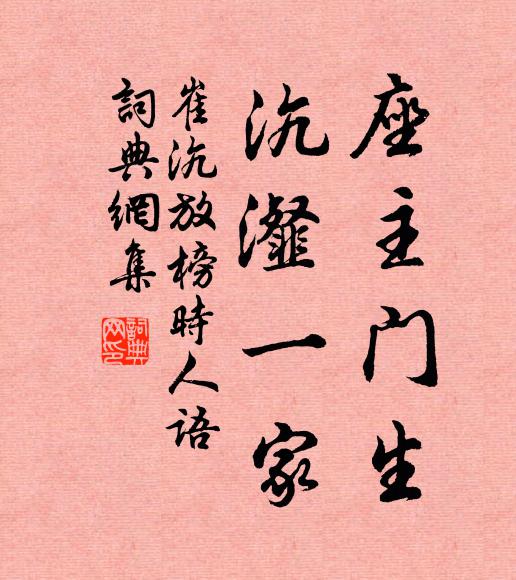 座主門生
沆瀣一家
崔沆放榜時人語
詞典網集
詞典
网印